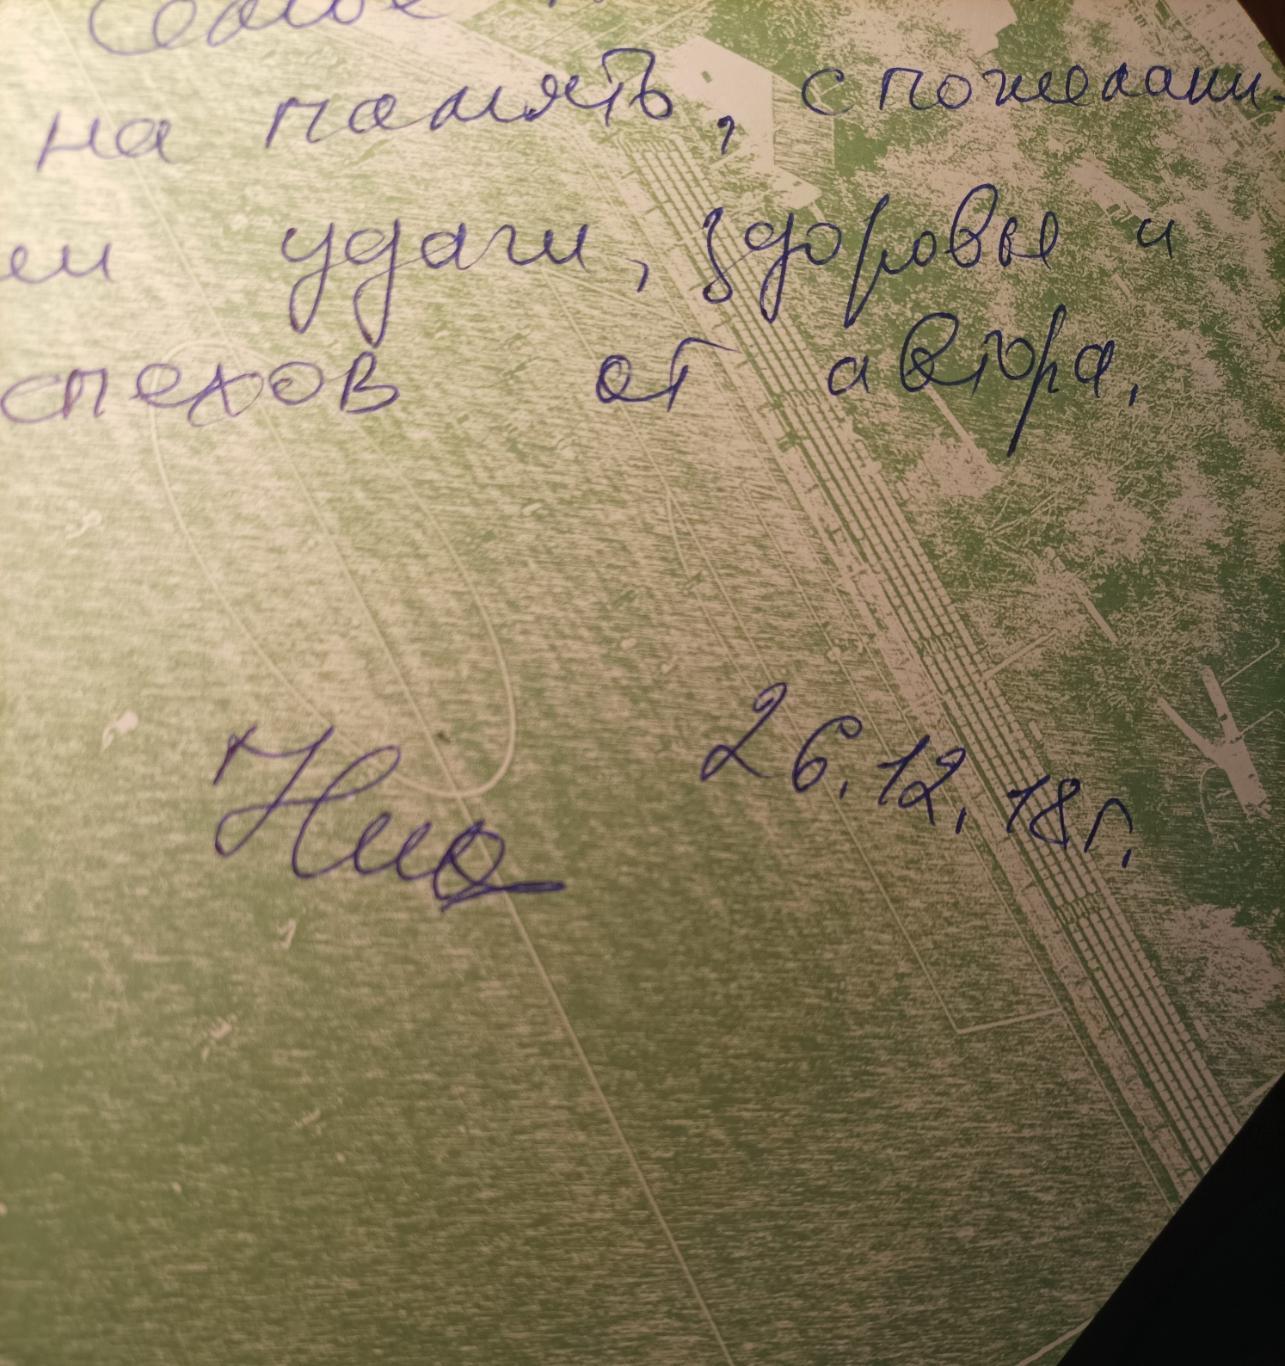 на память, с пожелани-
ем удачи, здоровья и
спехов от автора.
26.12.18 г.